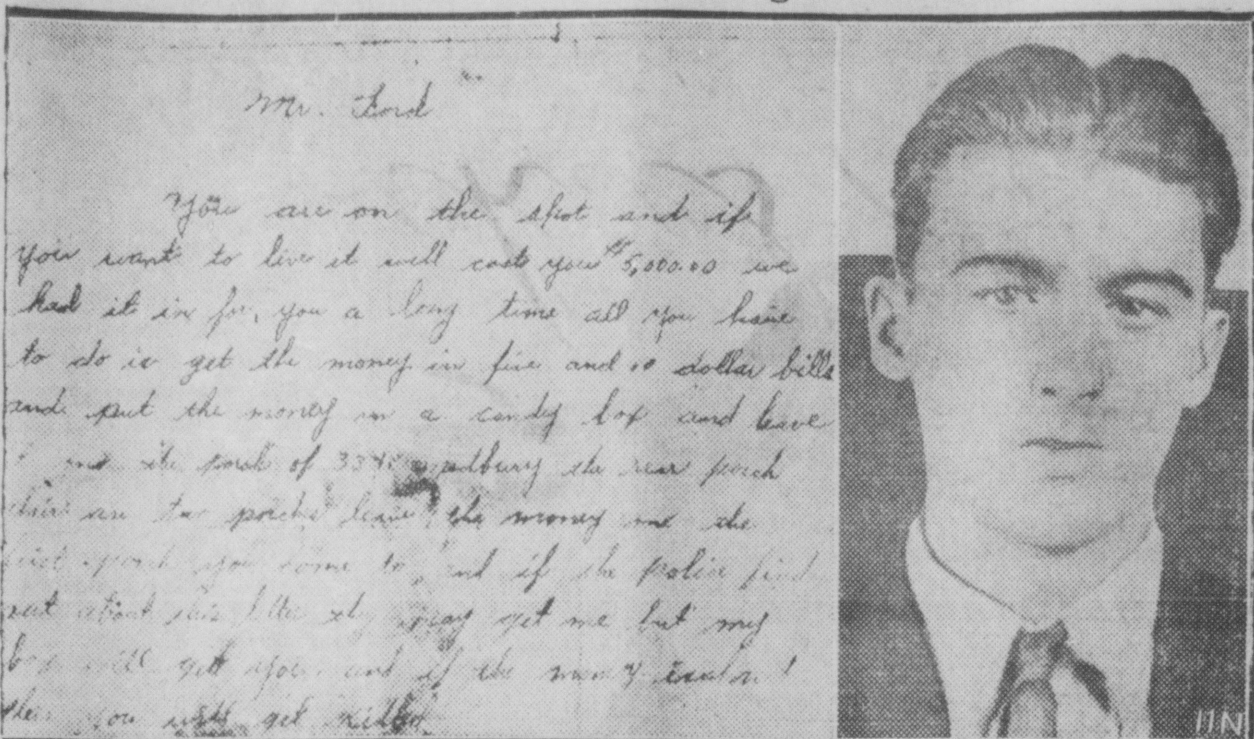 Mr. Ford
You are on the spot and if
you want to live it will cost you $5,000.00 we
had it in for you a long time all you have
to do is get the money in five and 10 dollar bills
and put the money in a candy box and leave
the porch of the rear porch
are two porches leave the money one the
porch you come to and if the police find
out about this letter they may get me but my
boys will get you and if the money
then you will get killed
11N